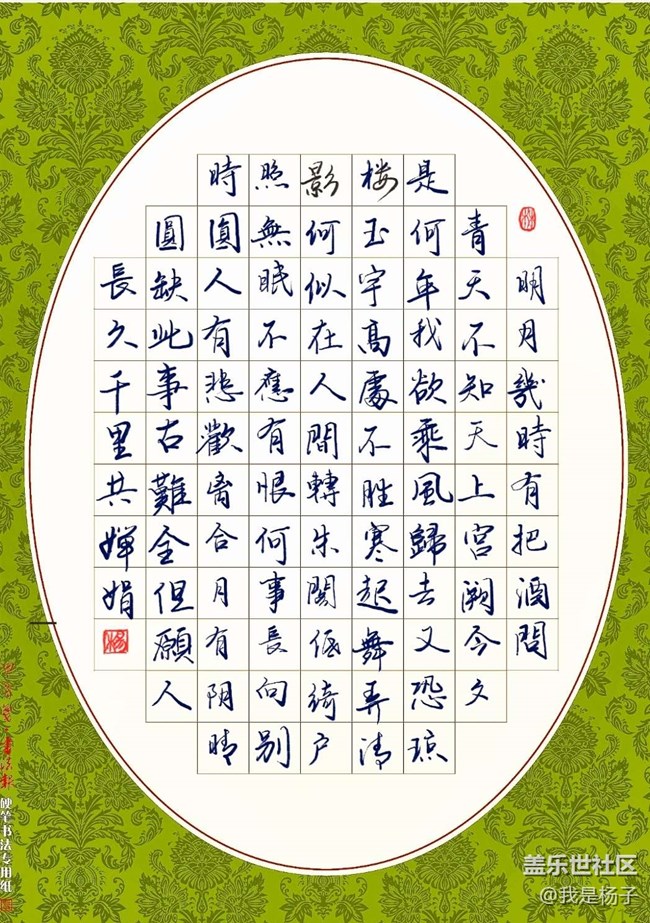 明月幾時有把酒問
青天不知天上宮闕今夕
是何年我欲乘風歸去又恐琼
楼玉宇高處不胜寒起舞弄清
影何似在人間轉朱閣低綺户
照無眠不應有恨何事長向别
時圓人有悲歡离合月有阴晴
圓缺此事古難全但願人
長久千里共嬋娟
硬笔书法专用纸
盖乐世社区
@我是杨子